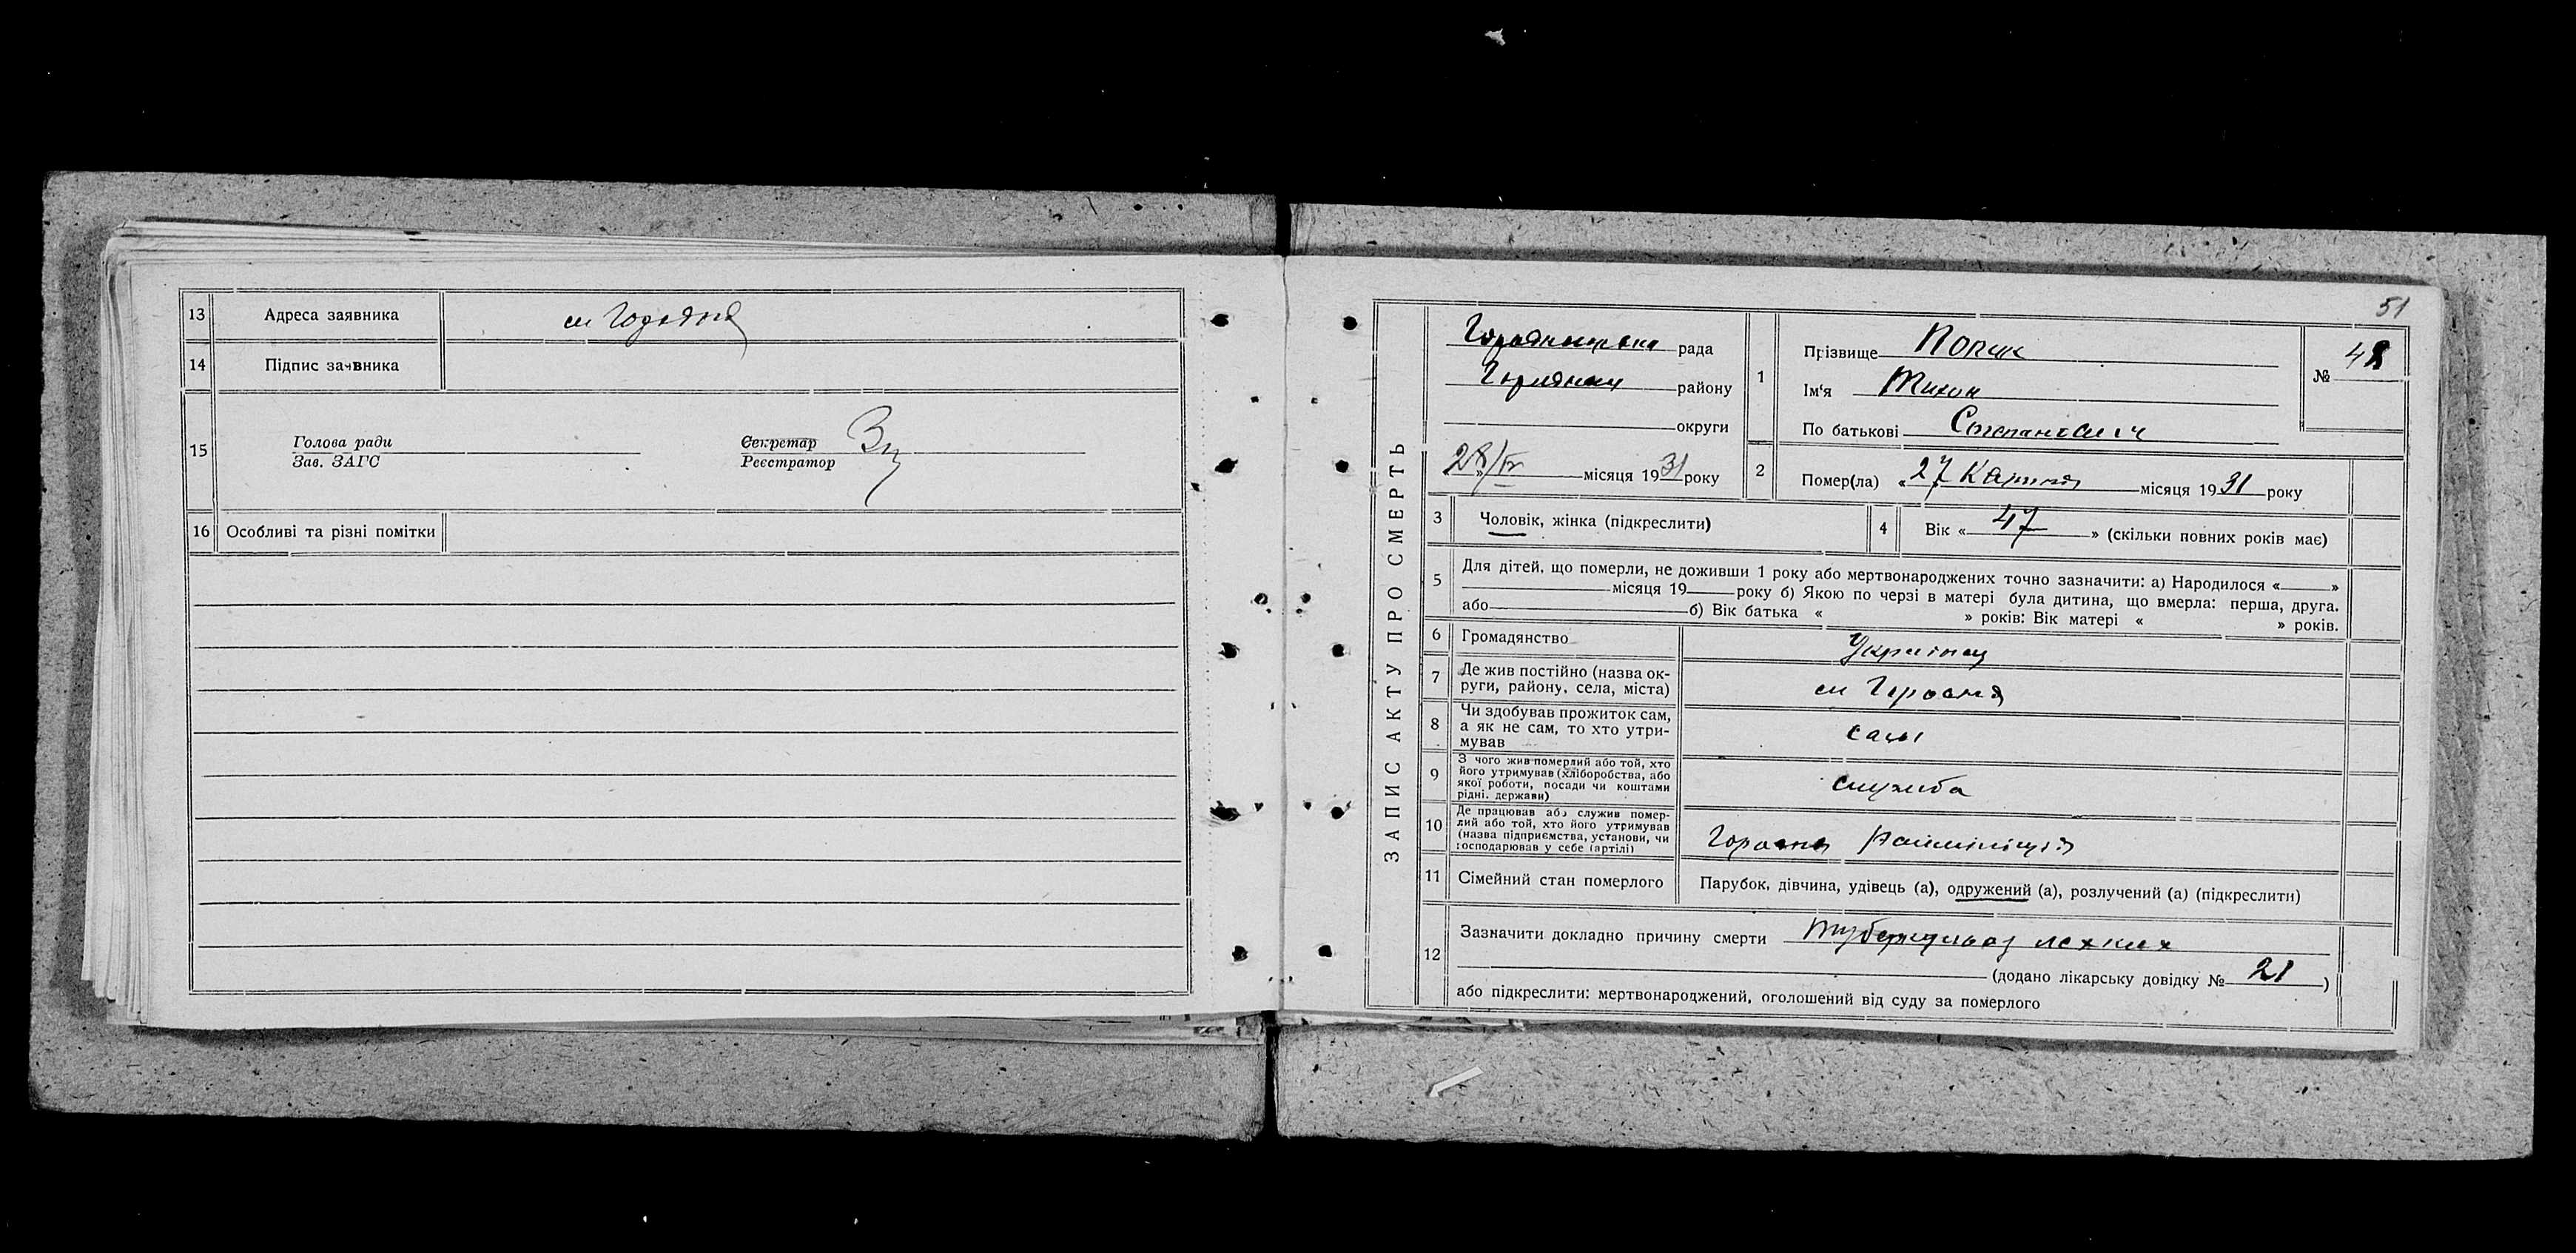 13 Адреса заявника см Городня
14 Підпис заявника
15 Голова ради
Зав. ЗАГС
Секретар
Реєстратор
16 Особливі та різні помітки
51
ЗАПИС АКТУ ПРО СМЕРТЬ
рада
району
округи
28/IV місяця 1931 року
1 Прізвище Попик
Ім'я Тихон
По батькові Степанович
№ 48
2 Помер(ла) « 27 Квітня місяця 1931 року
3 Чоловік, жінка (підкреслити)
4 Вік « 47 » (скільки повних років має)
5 Для дітей, що померли, не доживши 1 року або мертвонароджених точно зазначити: а) Народилося « »
місяця 19 року б) Якою по черзі в матері була дитина, що вмерла: перша, друга.
або б) Вік батька « » років: Вік матері « » років.
6 Громадянство Українец
7 Де жив постійно (назва ок-
руги, району, села, міста) см Городня
8 Чи здобував прожиток сам,
а як не сам, то хто утри-
мував сам
9 З чого жив померлий або той, хто
його утримував (хліборобства, або
якої роботи, посади чи коштами
рідні, держави) служба
10 Де працював або служив помер-
лий або той, хто його утримував
(назва підприємства, установи, чи
господарював у себе (артілі) Городня Райміліція
11 Сімейний стан померлого Парубок, дівчина, удівець (а), одружений (а), розлучений (а) (підкреслити)
12 Зазначити докладно причину смерти туберкульоз лехких
(додано лікарську довідку № 21 )
або підкреслити: мертвонароджений, оголошений від суду за померлого